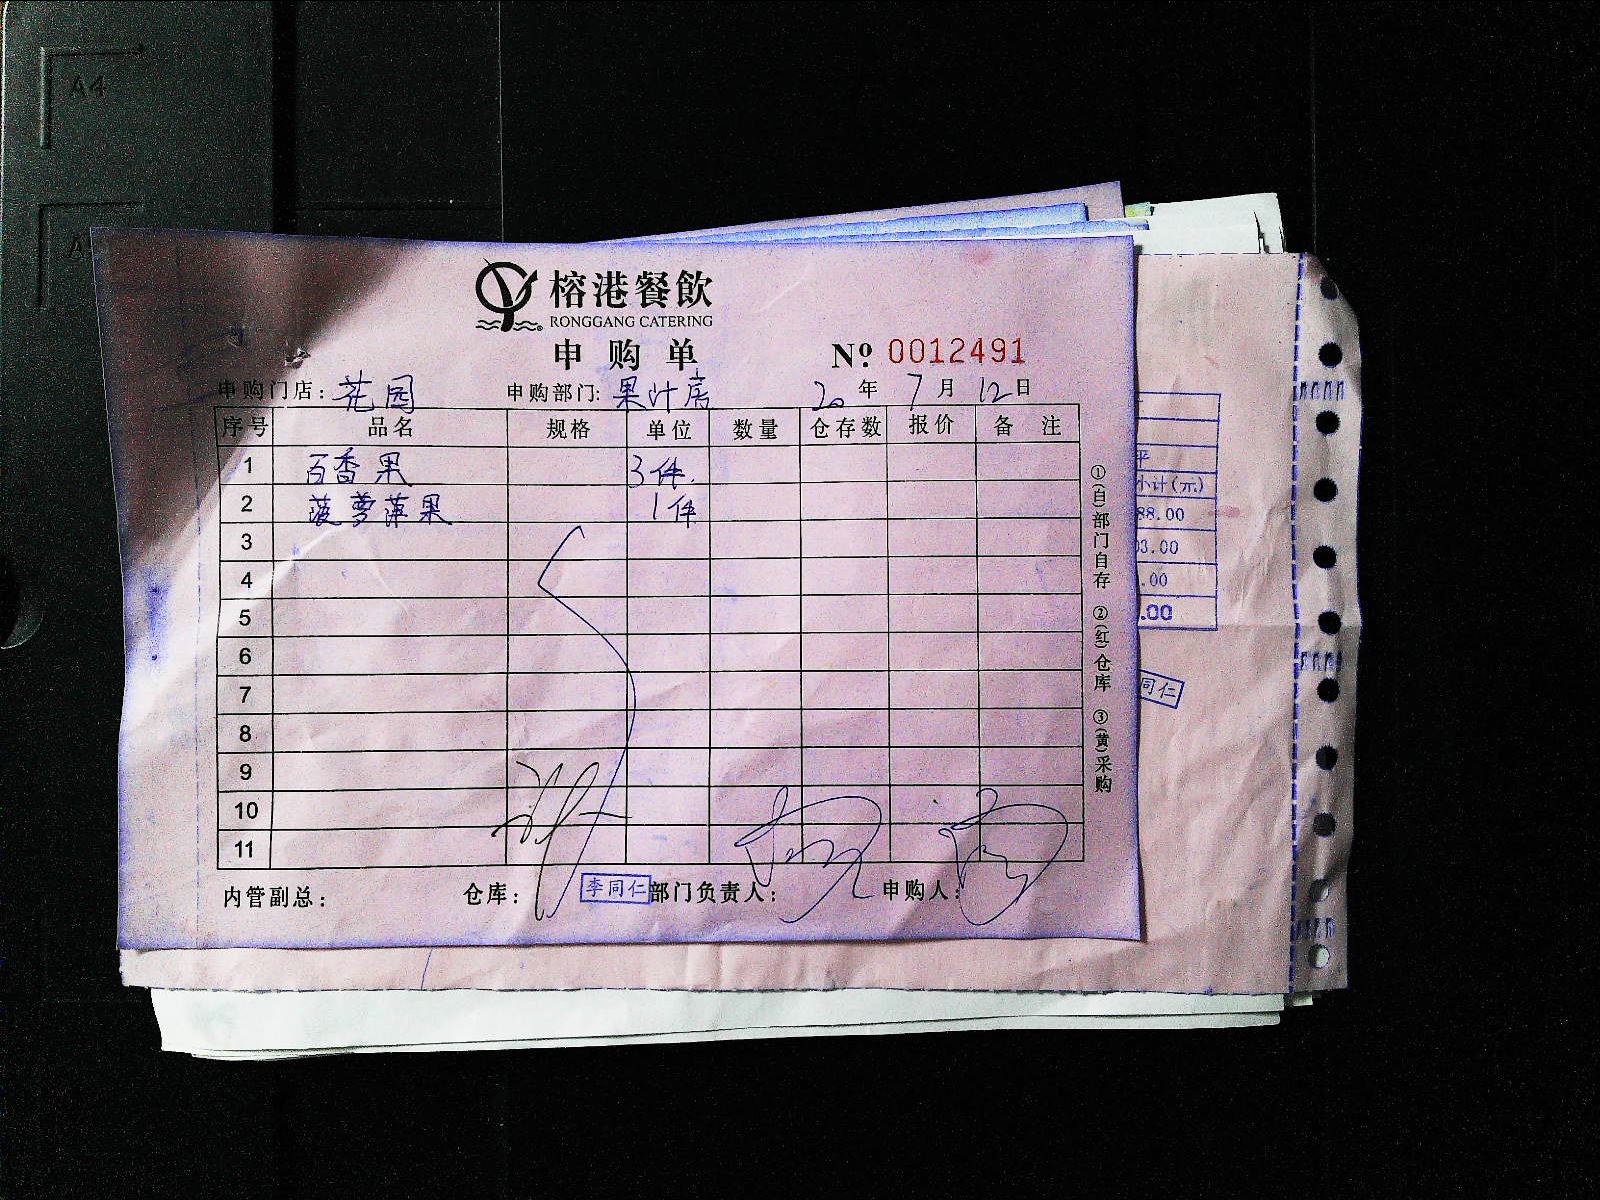 A4
榕港餐飲
RONGGANG CATERING
申购单
№ 0012491
申购门店: 花园 申购部门: 果汁房 20 年 7 月 12 日
序号 品名 规格 单位 数量 仓存数 报价 备注
1 百香果 3件.
2 菠萝萍果 1件
3
4
5
6
7
8
9
10
11
内管副总: 仓库: 李同仁 部门负责人: 申购人:
①(白)部门自存 ②(红)仓库 ③(黄)采购
平
小计(元)
88.00
03.00
.00
.00
同仁